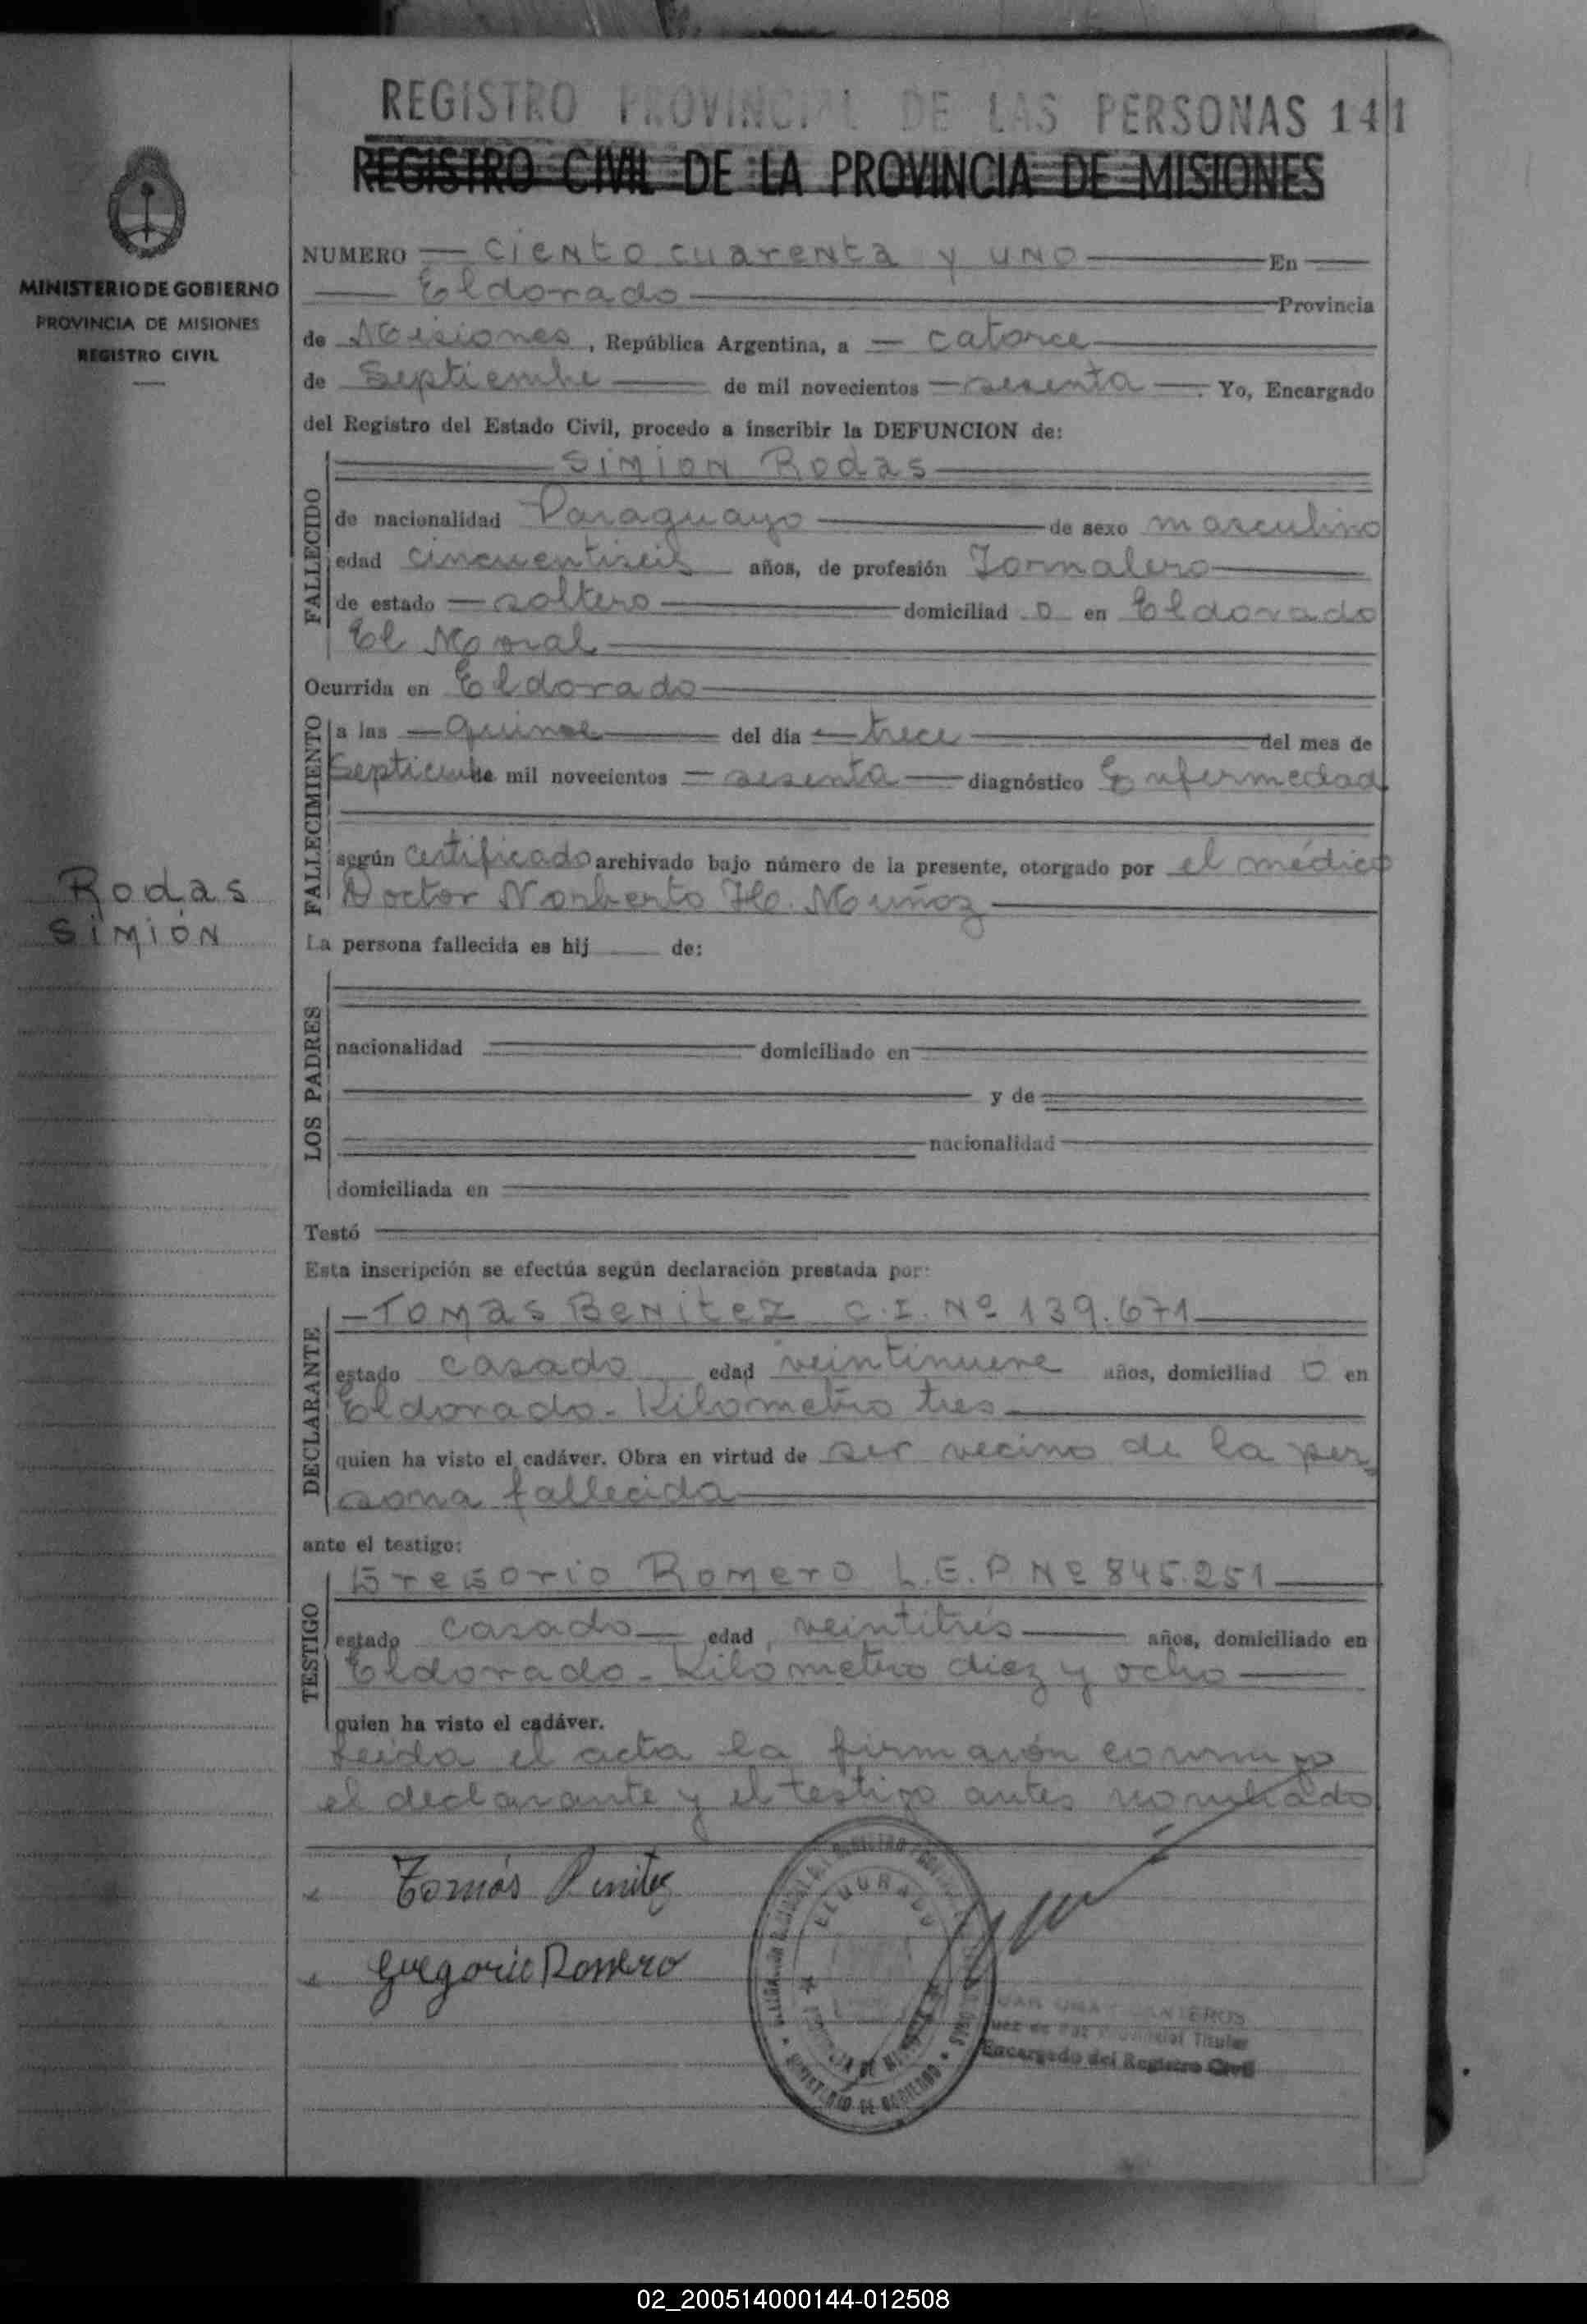 REGISTRO PROVINCIAL DE LAS PERSONAS 141
REGISTRO CIVIL DE LA PROVINCIA DE MISIONES
MINISTERIO DE GOBIERNO
PROVINCIA DE MISIONES
REGISTRO CIVIL
Rodas
Simión
NUMERO ciento cuarenta y uno En
Eldorado Provincia
de Misiones, República Argentina, a catorce
de Septiembre de mil novecientos sesenta. Yo, Encargado
del Registro del Estado Civil, procedo a inscribir la DEFUNCION de:
Simion Rodas
FALLECIDO
de nacionalidad Paraguayo de sexo masculino
edad cincuentiseis años, de profesión Jornalero
de estado soltero domiciliad o en Eldorado
El Moral
Ocurrida en Eldorado
FALLECIMIENTO
a las quince del día trece del mes de
Septiembre mil novecientos sesenta diagnóstico Enfermedad
según certificado archivado bajo número de la presente, otorgado por el médico
Doctor Norberto H. Muñoz
La persona fallecida es hij de:
LOS PADRES
nacionalidad domiciliado en
y de
nacionalidad
domiciliada en
Testó
Esta inscripción se efectúa según declaración prestada por:
DECLARANTE
Tomas Benitez C.I. Nº 139.671
estado casado edad veintinueve años, domiciliad o en
Eldorado - Kilometro tres
quien ha visto el cadáver. Obra en virtud de ser vecino de la per
sona fallecida
ante el testigo:
TESTIGO
Gregorio Romero L.E.P. Nº 845.251
estado casado edad veintitrés años, domiciliado en
Eldorado - Kilometro diez y ocho
quien ha visto el cadáver.
Leída el acta la firmarón conmigo
el declarante y el testigo antes nombrado
Tomás Benitez
Gregorio Romero
ELDORADO
MINISTERIO DE GOBIERNO
Juez de Paz Provincial Titular
Encargado del Registro Civil
02_200514000144-012508